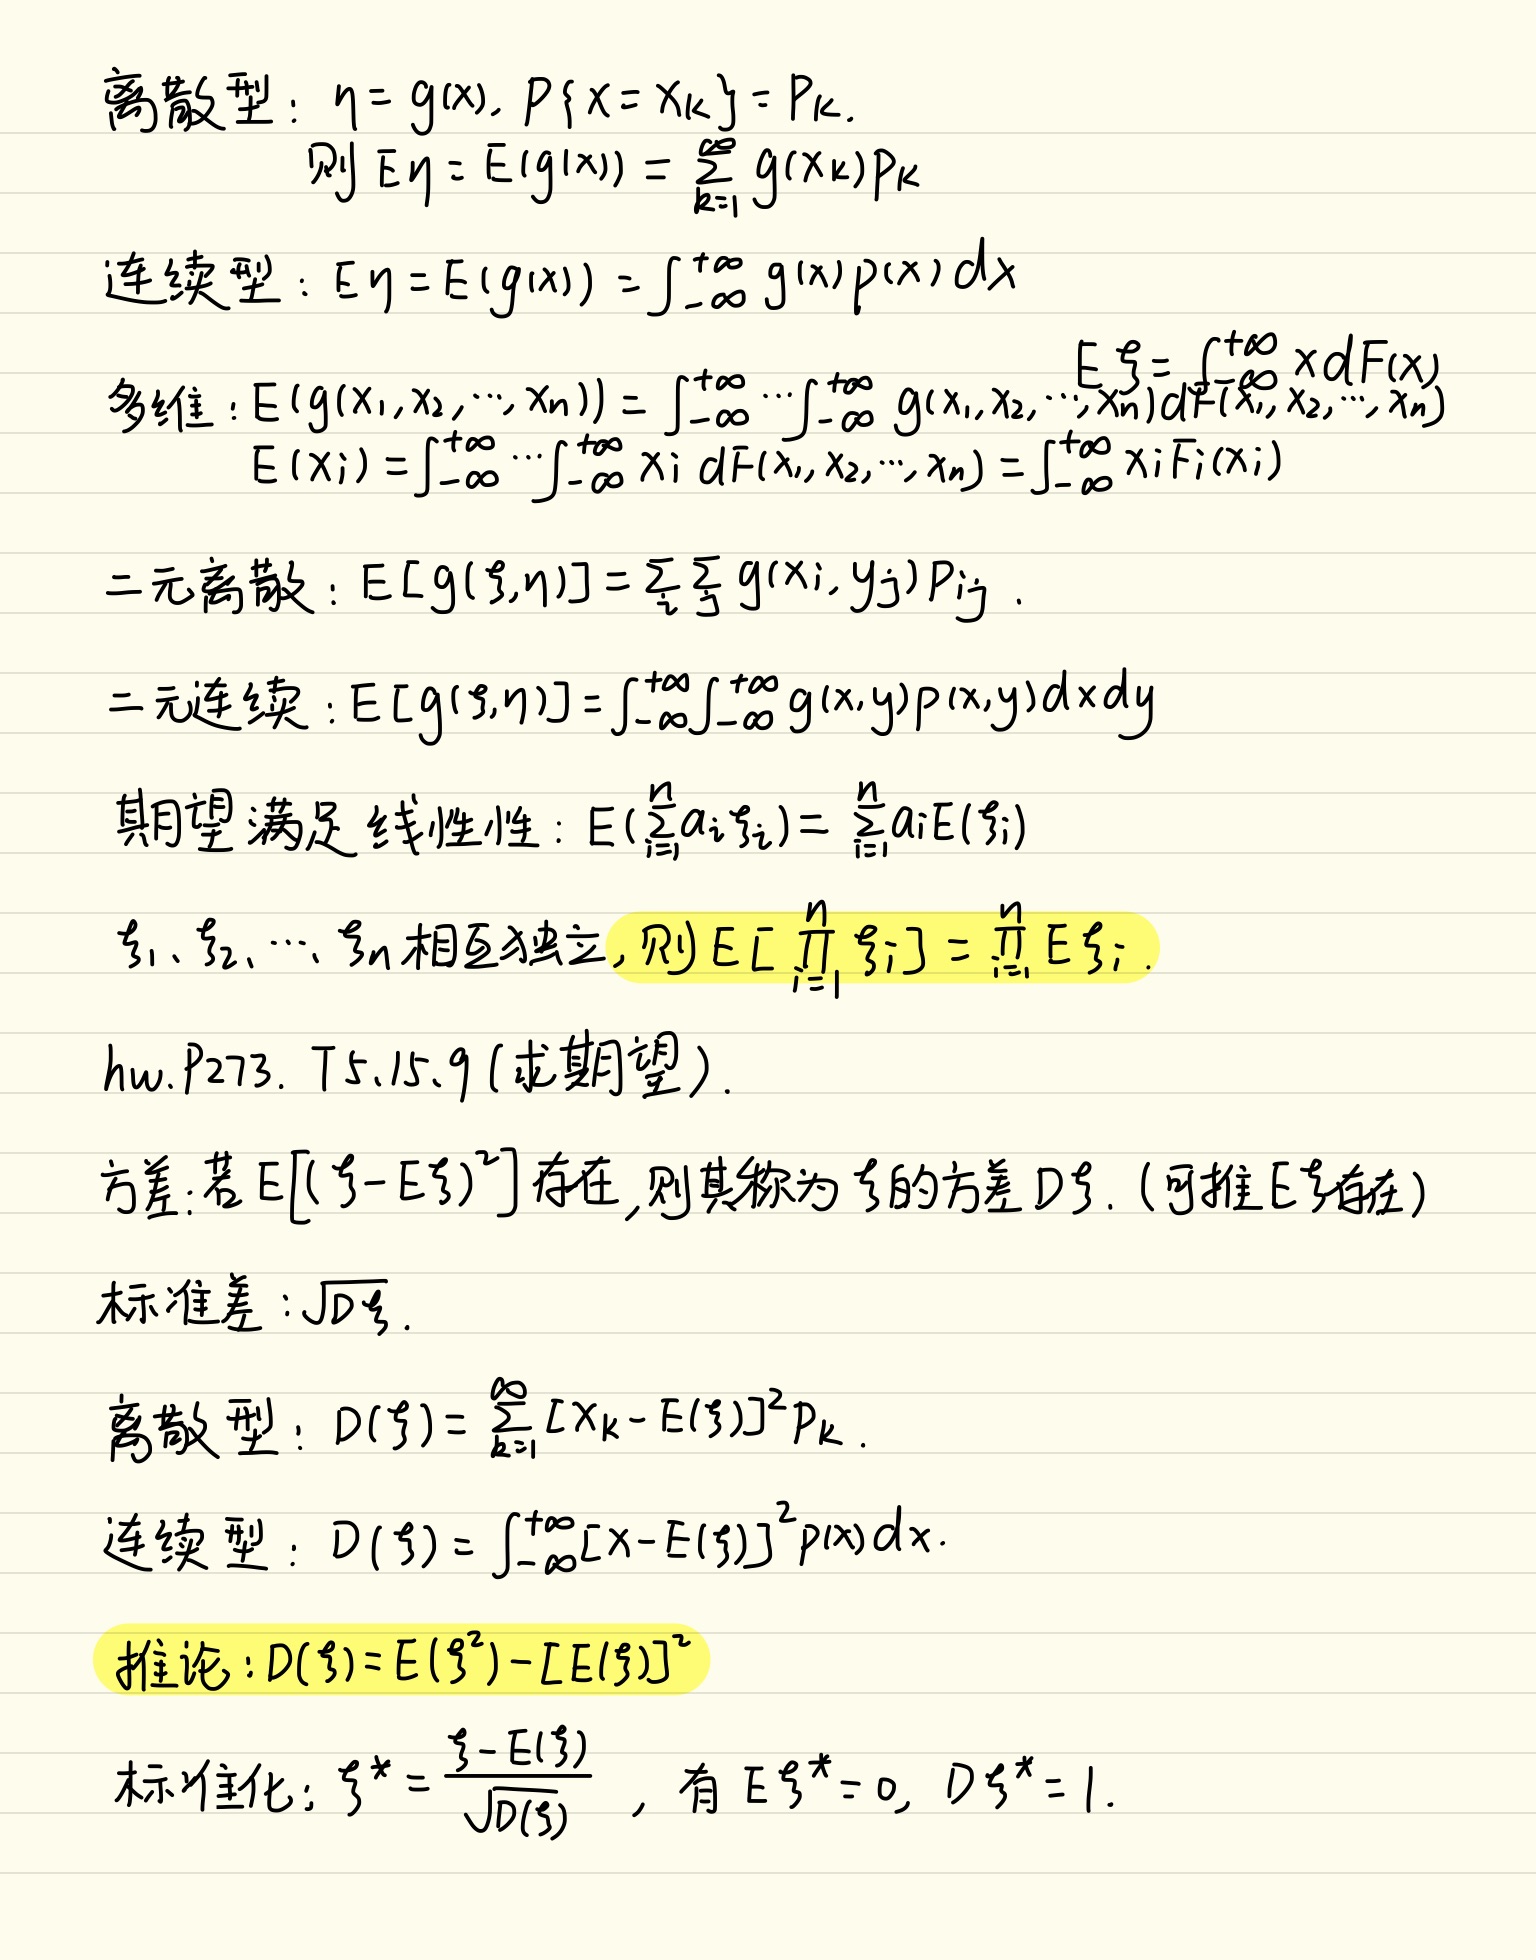 离散型: η = g(x), P{x = x_k} = P_k.
则 Eη = E(g(x)) = ∑_{k=1}^{∞} g(x_k)p_k
连续型: Eη = E(g(x)) = ∫_{-∞}^{+∞} g(x)p(x)dx
Eξ = ∫_{-∞}^{+∞} x dF(x)
多维: E(g(x₁,x₂,…,xₙ)) = ∫_{-∞}^{+∞}…∫_{-∞}^{+∞} g(x₁,x₂,…,xₙ)dF(x₁,x₂,…,xₙ)
E(xᵢ) = ∫_{-∞}^{+∞}…∫_{-∞}^{+∞} xᵢ dF(x₁,x₂,…,xₙ) = ∫_{-∞}^{+∞} xᵢFᵢ(xᵢ)
二元离散: E[g(ξ,η)] = ∑_i ∑_j g(x_i,y_j)P_{ij}.
二元连续: E[g(ξ,η)] = ∫_{-∞}^{+∞}∫_{-∞}^{+∞} g(x,y)p(x,y)dxdy
期望满足线性性: E(∑_{i=1}^{n} aᵢξᵢ) = ∑_{i=1}^{n} aᵢE(ξᵢ)
ξ₁、ξ₂、…、ξₙ相互独立,则E[∏_{i=1}^{n} ξᵢ] = ∏_{i=1}^{n} Eξᵢ.
hw.P273. T5、15、9(求期望).
方差:若E[(ξ-Eξ)²]存在,则其称为ξ的方差Dξ.(可推Eξ存在)
标准差:√Dξ.
离散型: D(ξ) = ∑_{k=1}^{∞} [x_k - E(ξ)]²p_k.
连续型: D(ξ) = ∫_{-∞}^{+∞} [x-E(ξ)]²p(x)dx.
推论:D(ξ)=E(ξ²)-[E(ξ)]²
标准化: ξ* = (ξ-E(ξ))/√D(ξ), 有 Eξ*=0, Dξ*=1.